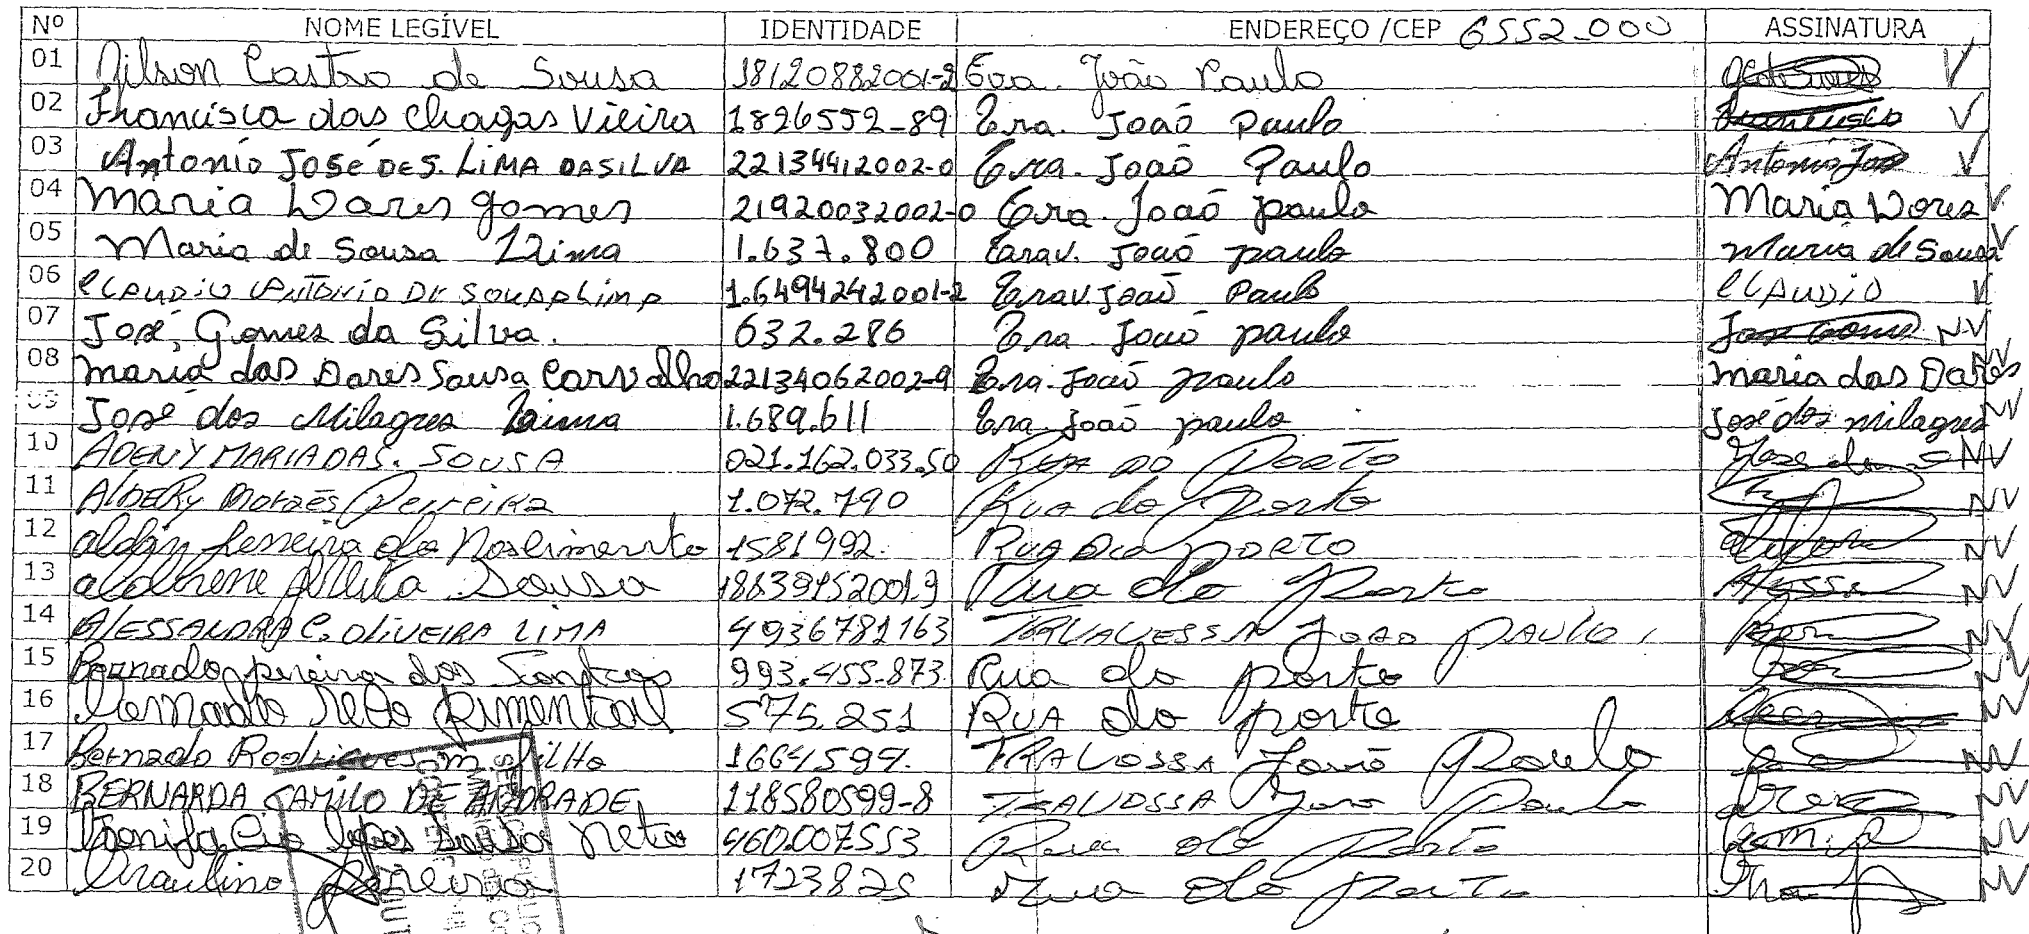 Nº NOME LEGÍVEL IDENTIDADE ENDEREÇO /CEP 6552_000 ASSINATURA
01 Gilson Castro de Sousa 18120882001-2 Tra. João Paulo V
02 Francisca das Chagas Vieira 1826552-89 Tra. João Paulo Francisca V
03 Antonio José DE S. LIMA DA SILVA 22134412002-0 Tra. João Paulo Antonio José V
04 Maria Dores gomes 21920032002-0 Tra. João paulo Maria Dores V
05 Maria de Sousa Lima 1.637.800 Trav. João paulo Maria de Sousa V
06 CLAUDIO ANTÔNIO DE SOUSA LIMA 1.6494242001-2 Trav. João Paulo CLAUDIO V
07 José, Gomes da Silva. 632.286 Tra João paulo José Gome NV
08 maria das Dores Sousa Carvalho 22134062002-9 Tra. João paulo maria das Dores NV
09 José dos Milagres Lima 1.689.611 Tra. João paulo José dos milagres NV
10 ADENY MARIA DAS. SOUSA 021.162.033.50 RUA DO PORTO NV
11 AlDERy Moraes Pereira 1.072.790 Rua do Porto NV
12 aldan ferreira do Nascimento 1581992. RUA Do PORTO NV
13 Sousa 18639152001.9 Rua do Porto NV
14 AlESSANDRA C. OLIVEIRA LIMA 4936781163 TRAVESSA JOAO PAULO, NV
15 Bernado pereira dos Santos 993.455.873 Rua do porto NV
16 Bernado Neto Pimentel 575.251 RUA do porto NV
17 Bernado Rodrigues m. filho 16641597. TRAVOSSA João Paulo NV
18 BERNARDA CAMILO DE ANDRADE 118580599-8 TRAVOSSA João Paulo NV
19 Bonifacio lopes Neto 460.007553 Rua do Porto NV
20 Braulino Pereira 1723825 Rua do porto NV